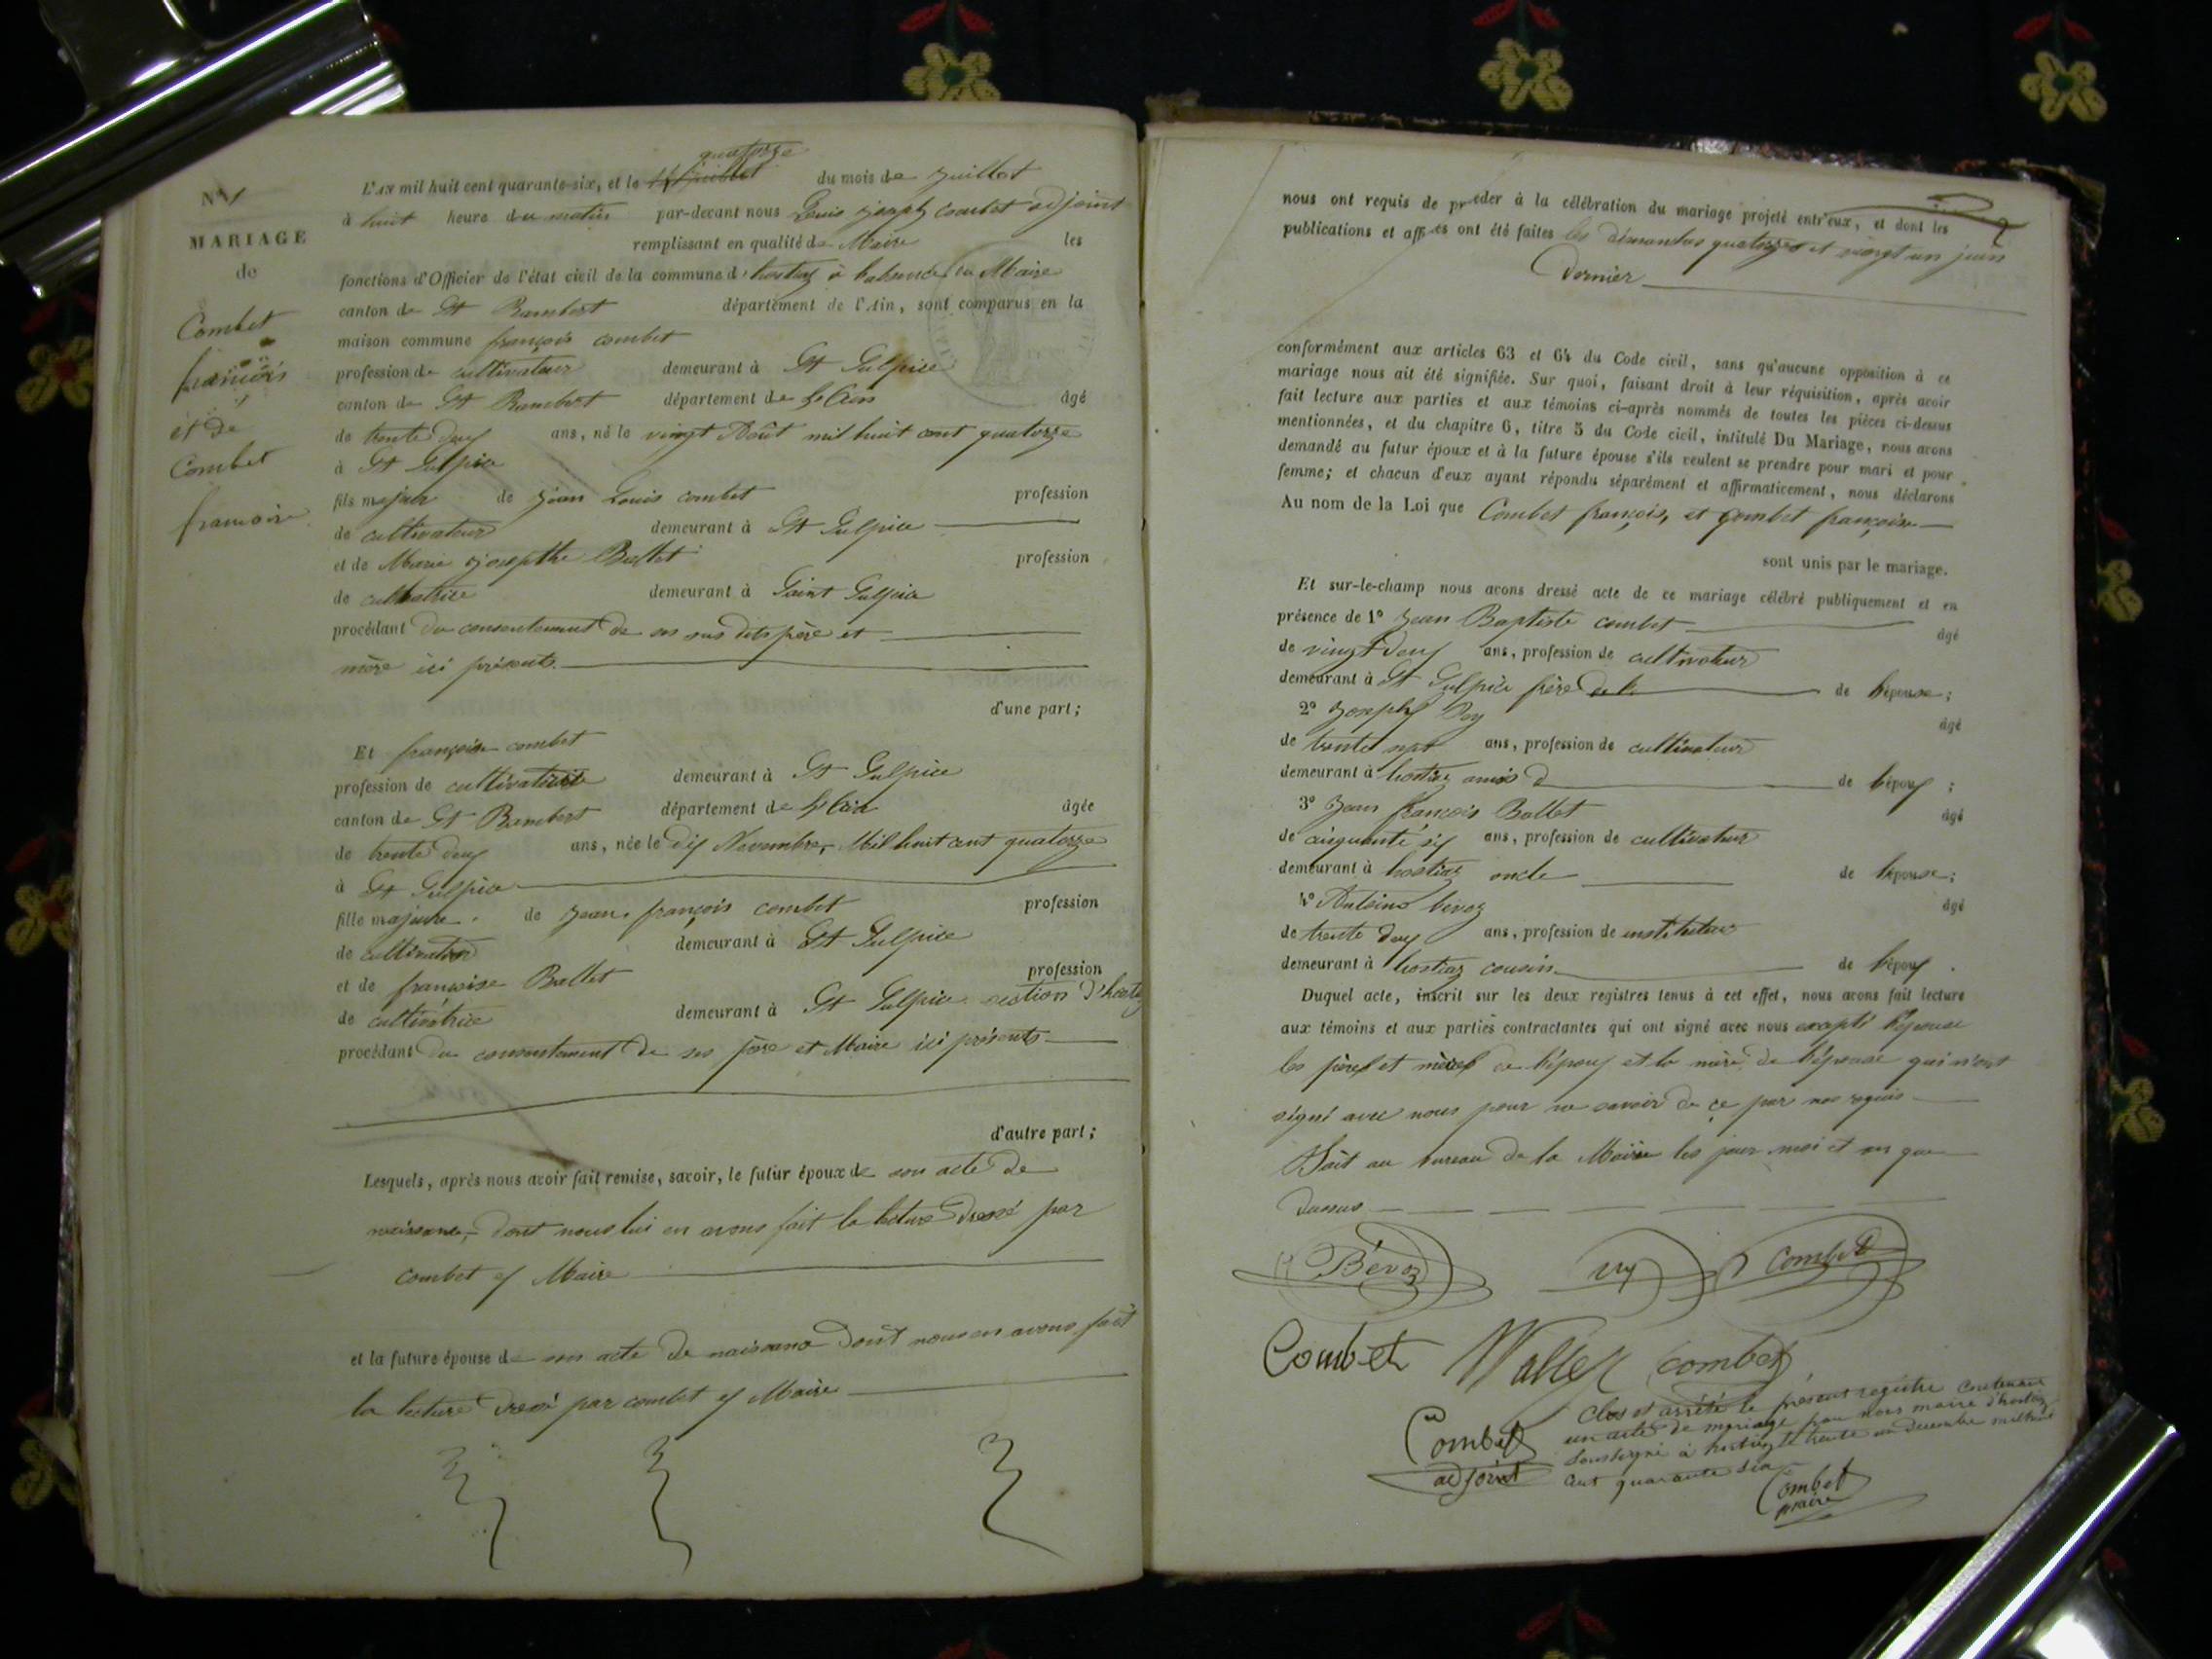 N° 1
MARIAGE
de
Combet
françois
et de
Combet
francoise
quatorze
L'An mil huit cent quarante-six, et le du mois de Juillet
à huit heure du matin par-devant nous Louis joseph combet adjoint
remplissant en qualité de Maire les
fonctions d'Officier de l'état civil de la commune d' hostiaz Maire
canton de St Rambert département de l'Ain, sont comparus en la
maison commune françois combet
profession de cultivateur demeurant à St Sulpice
canton de St Rambert département de L'Ain âgé
de trente deux ans, né le vingt Août mil huit cent quatorze
à St Sulpice
fils majeur de jean Louis combet profession
de cultivateur demeurant à St Sulpice
et de Marie josepthe Ballet profession
de cultivatrice demeurant à Saint Sulpice
procédant du consentement de ses sus dits père et
mère ici présents
d'une part;
Et françoise combet
profession de cultivatrice demeurant à St Sulpice
canton de St Rambert département de L'Ain âgée
de trente deux ans, née le dix Novembre, Mil huit cent quatorze
à St Sulpice
fille majeure de Jean françois combet profession
de cultivateur demeurant à St Sulpice
et de francoise Ballet profession
de cultivatrice demeurant à St Sulpice section d'hostiaz
procédant du consentement de ses père et Maire ici présents
d'autre part;
Lesquels, après nous avoir fait remise, savoir, le futur époux de son acte de
naissance, dont nous lui en avons fait la lecture dressé par
combet ex Maire
et la future épouse de son acte de naissance dont nous en avons fait
la lecture dressé par combet ex Maire
nous ont requis de procéder à la célébration du mariage projeté entr'eux, et dont les
publications et affiches ont été faites les dimanches quatorze et vingt un juin
dernier
conformément aux articles 63 et 64 du Code civil, sans qu'aucune opposition à ce
mariage nous ait été signifiée. Sur quoi, faisant droit à leur réquisition, après avoir
fait lecture aux parties et aux témoins ci-après nommés de toutes les pièces ci-dessus
mentionnées, et du chapitre 6, titre 5 du Code civil, intitulé Du Mariage, nous avons
demandé au futur époux et à la future épouse s'ils veulent se prendre pour mari et pour
femme; et chacun d'eux ayant répondu séparément et affirmativement, nous déclarons
Au nom de la Loi que Combet françois, et Combet françoise
sont unis par le mariage.
Et sur-le-champ nous avons dressé acte de ce mariage célébré publiquement et en
présence de 1° Jean Baptiste combet âgé
de vingt deux ans, profession de cultivateur
demeurant à St Sulpice frère de l'épouse;
2° Joseph âgé
de trente sept ans, profession de cultivateur
demeurant à hostiaz amis de l'époux;
3° Jean françois Ballet âgé
de cinquante six ans, profession de cultivateur
demeurant à hostiaz oncle de l'épouse;
4° Antoine bévoz âgé
de trente deux ans, profession de instituteur
demeurant à hostiaz cousin de l'époux.
Duquel acte, inscrit sur les deux registres tenus à cet effet, nous avons fait lecture
aux témoins et aux parties contractantes qui ont signé avec nous excepté l'épouse
les père et mère de l'époux et la mère de l'épouse qui n'ont
signé avec nous pour ne savoir de ce par nous requis
Fait au bureau de la Mairie les jour moi et an que
dessus
Bévoz Combet
Combet Combet
Combet
adjoint
Clos et arrêté le présent registre contenant
un acte de mariage par nous maire d'hostiaz
soussigné à hostiaz le trente un decembre mil huit
cent quarante six
Combet
maire